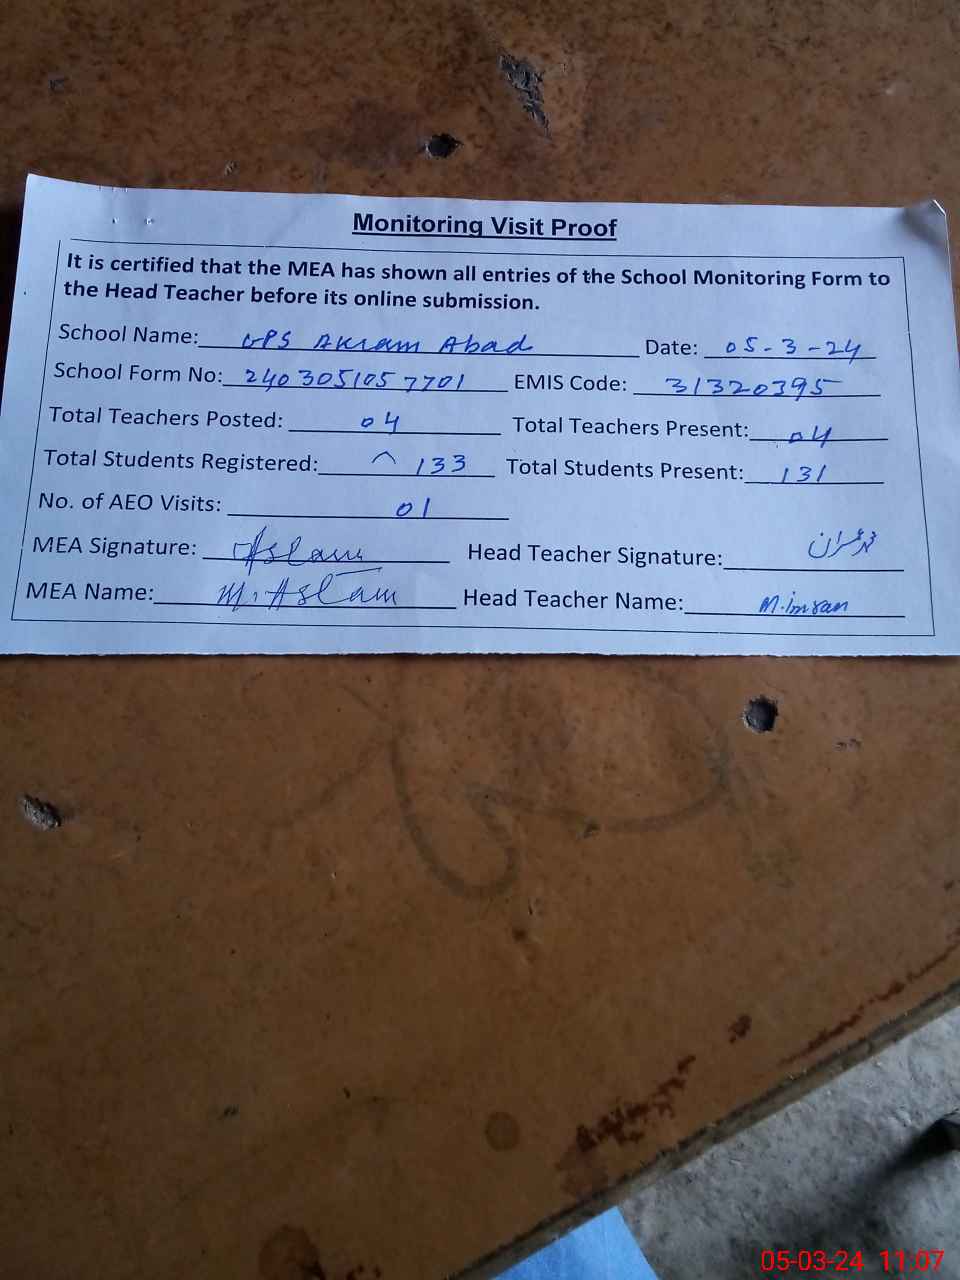 Monitoring Visit Proof
It is certified that the MEA has shown all entries of the School Monitoring Form to
the Head Teacher before its online submission.
School Name: GPS Akram Abad Date: 05-3-24
School Form No: 2403051057701 EMIS Code: 31320395
Total Teachers Posted: 04 Total Teachers Present: 04
Total Students Registered: 133 Total Students Present: 131
No. of AEO Visits: 01
MEA Signature: Aslam Head Teacher Signature: محمد عمران
MEA Name: M. Aslam Head Teacher Name: M. imran
05-03-24 11:07